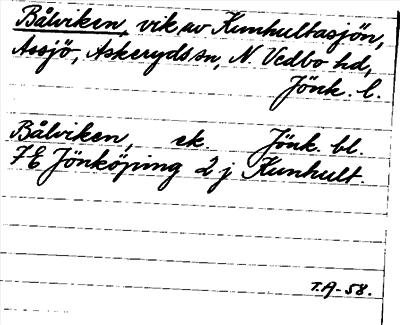 Bålviken, vik av Kunhultasjön,
Assjö, Askeryds sn, N. Vedbo hd,
Jönk. l.
Bålviken, ek. Jönk. bl.
7E Jönköping 2 j Kunhult.
T.A-58.